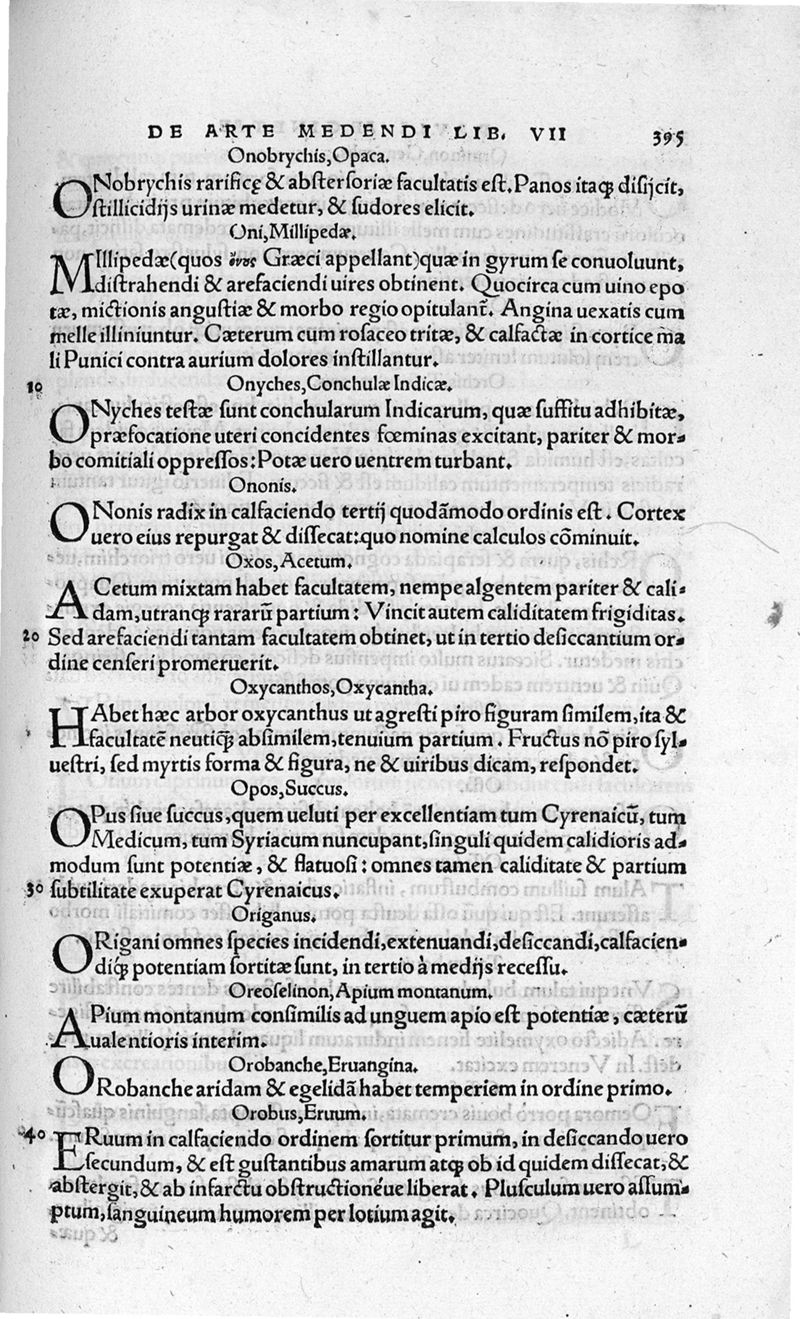 DE ARTE MEDENDI LIB. VII 395
Onobrychis, Opaca.
ONobrychis rarificę & abſterſoriæ facultatis eſt. Panos itaq; diſijcit,
ſtillicidijs urinæ medetur, & ſudores elicit.
Oni, Millipedæ.
MIllipedæ (quos ὄνος Græci appellant) quæ in gyrum ſe conuoluunt,
diſtrahendi & arefaciendi uires obtinent. Quocirca cum uino epo
tæ, mictionis anguſtiæ & morbo regio opitulant̃. Angina uexatis cum
melle illiniuntur. Cæterum cum roſaceo tritæ, & calfactæ in cortice ma
li Punici contra aurium dolores inſtillantur.
10 Onyches, Conchulæ Indicæ.
ONyches teſtæ ſunt conchularum Indicarum, quæ ſuffitu adhibitæ,
præfocatione uteri concidentes fœminas excitant, pariter & mor-
bo comitiali oppreſſos: Potæ uero uentrem turbant.
Ononis.
ONonis radix in calfaciendo tertij quodãmodo ordinis eſt. Cortex
uero eius repurgat & diſſecat: quo nomine calculos cõminuit.
Oxos, Acetum.
ACetum mixtam habet facultatem, nempe algentem pariter & cali-
dam, utranq; rararũ partium: Vincit autem caliditatem frigiditas.
20 Sed arefaciendi tantam facultatem obtinet, ut in tertio deſiccantium or-
dine cenſeri promeruerit.
Oxycanthos, Oxycantha.
HAbet hæc arbor oxycanthus ut agreſti piro figuram ſimilem, ita &
facultatẽ neutiq̃; abſimilem, tenuium partium. Fructus nõ piro ſyl-
ueſtri, ſed myrtis forma & figura, ne & uiribus dicam, reſpondet.
Opos, Succus.
OPus ſiue ſuccus, quem ueluti per excellentiam tum Cyrenaicũ, tum
Medicum, tum Syriacum nuncupant, ſinguli quidem calidioris ad-
modum ſunt potentiæ, & flatuoſi: omnes tamen caliditate & partium
30 ſubtilitate exuperat Cyrenaicus.
Origanus.
ORigani omnes ſpecies incidendi, extenuandi, deſiccandi, calfacien-
diq́; potentiam ſortitæ ſunt, in tertio à medijs receſſu.
Oreoſelinon, Apium montanum.
APium montanum conſimilis ad unguem apio eſt potentiæ, cæterũ
ualentioris interim.
Orobanche, Eruangina.
ORobanche aridam & egelidã habet temperiem in ordine primo.
Orobus, Eruum.
40 ERuum in calfaciendo ordinem ſortitur primum, in deſiccando uero
ſecundum, & eſt guſtantibus amarum atq; ob id quidem diſſecat, &
abſtergit, & ab infarctu obſtructionéue liberat. Pluſculum uero aſſum-
ptum, ſanguineum humorem per lotium agit.